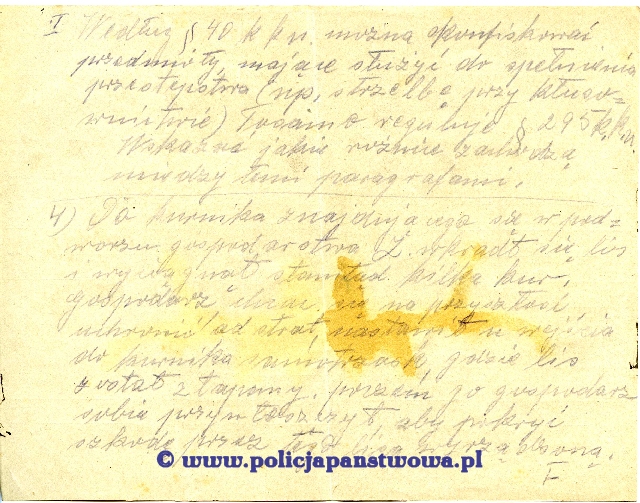 I Według § 40 k k n można skonfiskować
przedmioty mające służyć do spełnienia
przestępstwa (np. strzelbę przy kłuso-
wnictwie) To samo reguluje § 295 k.k.n.
Wskazać jakie różnice zachodzą
między temi paragrafami.
4) Do kurnika znajdującego się w pod-
wórzu gospodarstwa Z wkradł się lis
i wyciągnął stamtąd kilka kur.
gospodarz chcąc się na przyszłość
uchronić od strat nastawił u wejścia
do kurnika samotrzask, gdzie lis
został złapany, poczem go gospodarz
sobie przywłaszczył, aby pokryć
szkodę przez tegoż lisa wyrządzoną.
F
© www.policjapanstwowa.pl